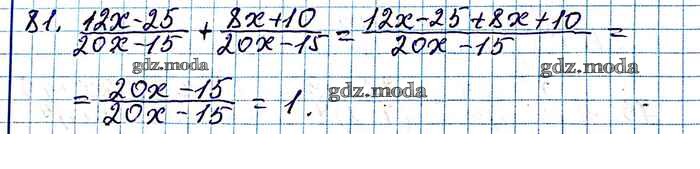 81. (12x-25)/(20x-15) + (8x+10)/(20x-15) = (12x-25+8x+10)/(20x-15) =
gdz.moda gdz.moda
= (20x-15)/(20x-15) = 1. gdz.moda